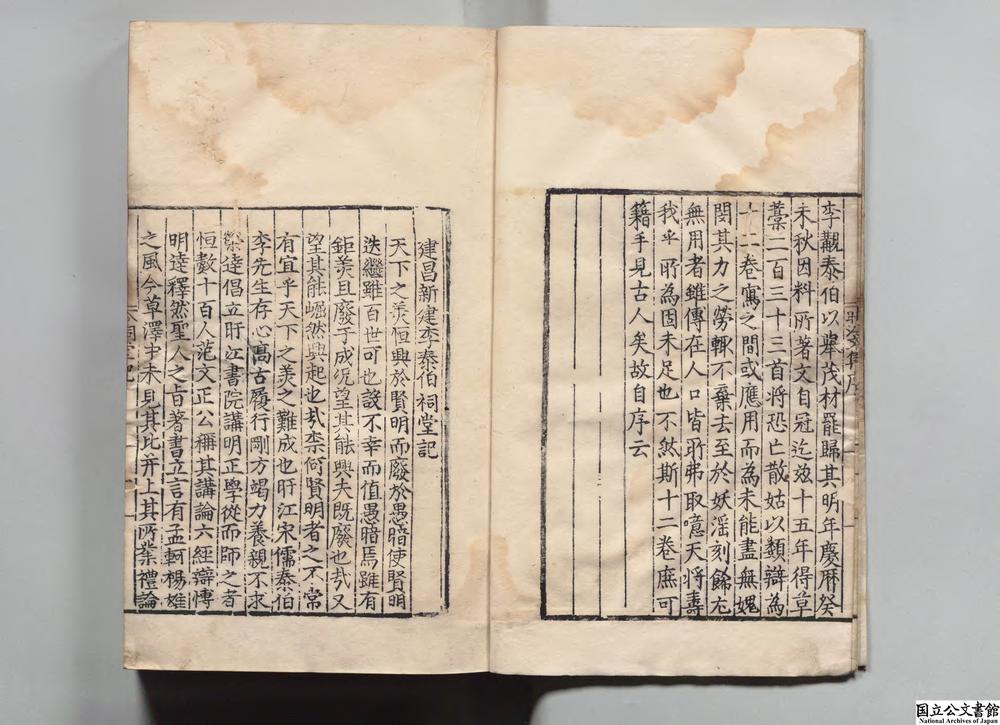 李覯泰伯以舉茂材罷歸其明年慶厤癸
未秋因料所著文自冠迄兹十五年得草
藁二百三十三首將恐亡散姑以類辯為
十二卷寫之間或應用而為未能盡無媿
閔其力之勞輒不棄去至於妖淫刻餙尤
無用者雖傳在人口皆所弗取噫天將壽
我乎所為固未足也不然斯十二卷庶可
籍手見古人矣故自序云
建昌新建李泰伯祠堂記
天下之美恒興於賢明而廢於愚暗使賢明
迭繼雖百世可也設不幸而值愚暗焉雖有
鉅美且廢于成況望其能興夫既廢也㢤又
望其能崛然興起也㢤柰何賢明者之不常
有宜乎天下之美之難成也盱江宋儒泰伯
李先生存心高古履行剛方竭力養親不求
榮達倡立盱江書院講明正學從而師之者
恒數十百人范文正公稱其講論六經辯愽
明達釋然聖人之旨著書立言有孟軻楊雄
之風今草澤中未見其比并上其所業禮論
国立公文書館
National Archives of Japan